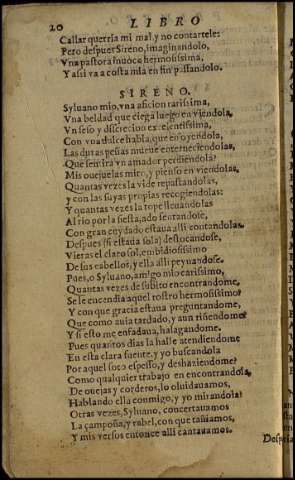 20 LIBRO
Callar querria mi mal, y no contarle:
Pero despues Sireno, imaginandolo,
Vna pastora inuoco hermosissima,
Y assi va a costa mia en fin passandolo.
SIRENO.
Syluano mio, vna aficion rarissima,
Vna beldad que ciega luego en viendola,
Vn seso y discrecion excelentissima,
Con vna dulce habla, que en oyendola,
Las duras peñas mueue enterneciendolas,
Que sentira vn amador perdiendola?
Mis ouejuelas miro, y pienso en viendolas,
Quantas vezes la vide repastandolas,
y con las suyas propias recogiendolas:
Y quantas vezes la tope lleuandolas
Al rio por la siesta, ado sentandose,
Con gran cuydado estaua alli contandolas.
Despues (si estaua sola) destocandose,
Vieras el claro sol, embidiosissimo
De sus cabellos, y ella alli peynandose.
Pues, o Syluano, amigo mio carissimo,
Quantas vezes de subito encontrandome,
Se le encendia aquel rostro hermosissimo?
Y con que gracia estaua preguntandome,
Que como auia tardado, y aun riñendome?
Y si esto me enfadaua, halagandome.
Pues quantos dias la halle atendiendome
En esta clara fuente, y yo buscandola
Por aquel soto espesso, y deshaziendome?
Como qualquier trabajo en encontrandola,
De ouejas y corderos, lo oluidauamos,
Hablando ella conmigo, y yo mirandola?
Otras vezes, Syluano, concertauamos
La çampoña, y rabel, con que tañiamos,
Y mis versos entonce alli cantauamos.
Despues